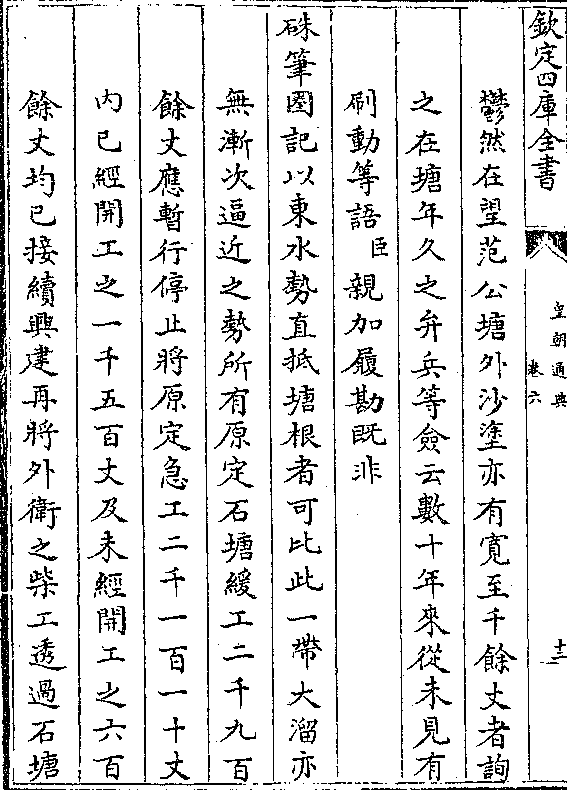 欽定四庫全書
皇朝通典
卷六
十二
鬱然在望范公塘外沙塗亦有寬至千餘丈者詢
之在塘年久之弁兵等僉云數十年來從未見有
刷動等語臣親加履勘既非
硃筆圈記以東水勢直抵塘根者可比此一帶大溜亦
無漸次逼近之勢所有原定石塘緩工二千九百
餘丈應暫行停止將原定急工二千一百一十丈
内已經開工之一千五百丈及未經開工之六百
餘丈均已接續興建再將外衛之柴工透過石塘